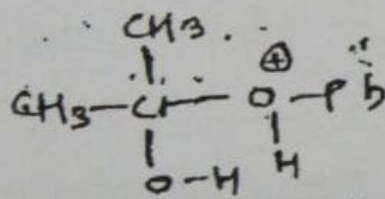 CH3
⊕
CH3-C-O-Ph
O-H H